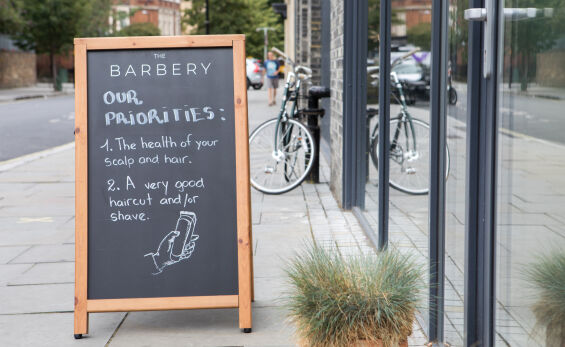 THE
BARBERY
OUR
PRIORITIES:
1. The health of your
scalp and hair.
2. A very good
haircut and/or
shave.